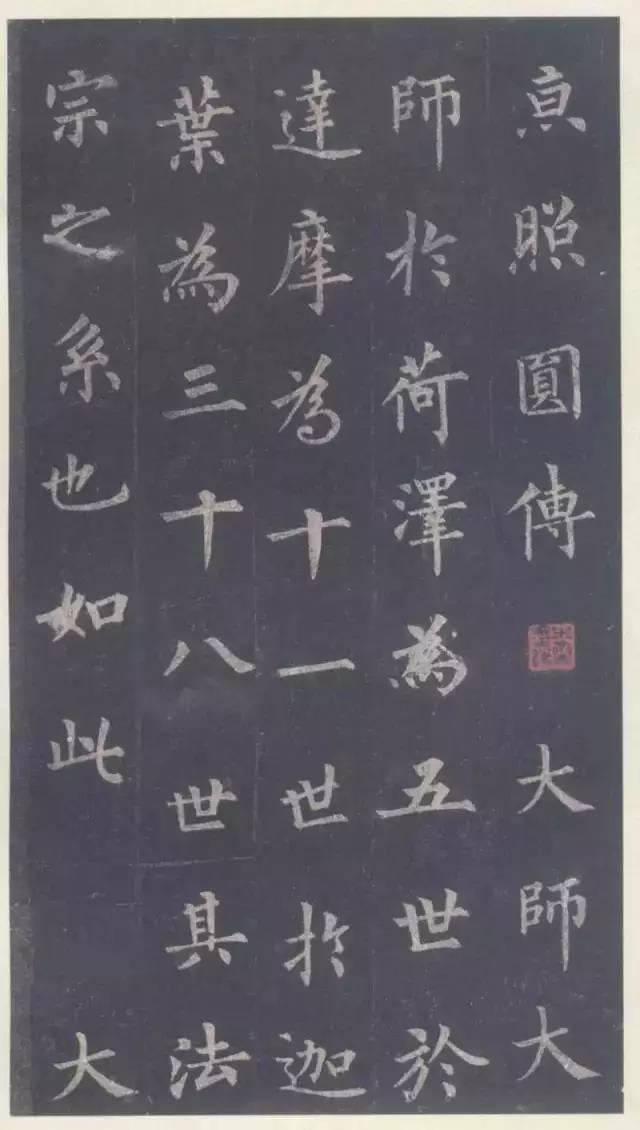 亰照圓傳大師大
師於荷澤為五世於
達摩為十一世於迦
葉為三十八世其法
宗之系也如此大